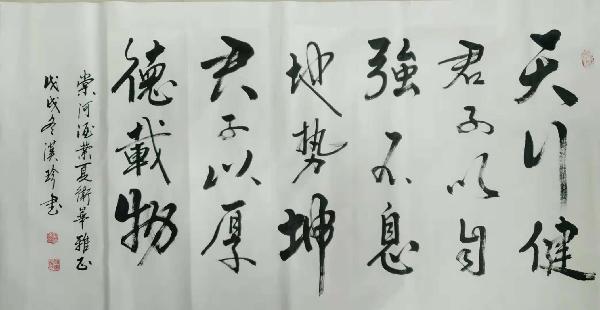 天行健
君子以自
強不息
地势坤
君子以厚
德載物
棠河酒業夏衛華雅正
戊戌冬漢珍书